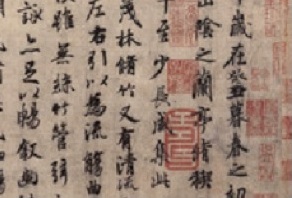 年歲在癸丑暮春之初
山陰之蘭亭脩稧
至少長咸集此
茂林脩竹又有清流
左右引以為流觴曲
雖無絲竹管弦
詠亦足以暢叙幽